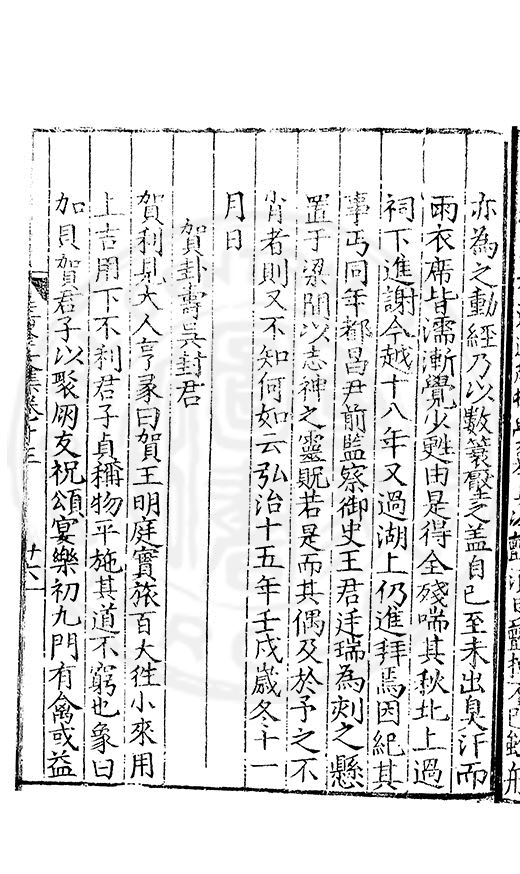 亦為之動經乃以數簑罄之盖自巳至未出臭汗而
雨衣席皆濡漸覺少甦由是得全殘喘其秋北上過
祠下進謝今越十八年又過湖上仍進拜焉因紀其
事丐同年都昌尹前監察御史王君廷瑞為刻之懸
置于梁間以志神之靈貺若是而其偶及於予之不
肖者則又不知何如云弘治十五年壬戌歲冬十一
月日
賀卦壽吳封君
賀利見大人亨彖曰賀王明庭實旅百大徃小來用
上吉用下不利君子貞稱物平施其道不窮也象曰
加貝賀君子以聚朋友祝頌宴樂初九門有禽或益
集卷十三
十六